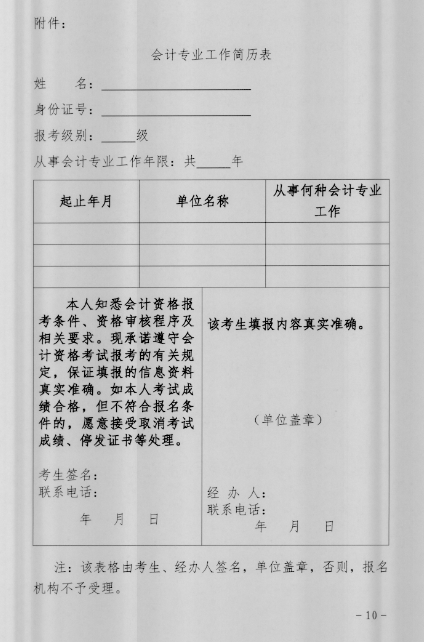 附件：
会计专业工作简历表
姓　　名：
身份证号：
报考级别：____级
从事会计专业工作年限：共____年
起止年月　单位名称　从事何种会计专业工作
本人知悉会计资格报
考条件、资格审核程序及
相关要求。现承诺遵守会
计资格考试报考的有关规
定，保证填报的信息资料
真实准确。如本人考试成
绩合格，但不符合报名条
件的，愿意接受取消考试
成绩、停发证书等处理。
考生签名：
联系电话：
年　月　日
该考生填报内容真实准确。
（单位盖章）
经 办 人：
联系电话：
年　月　日
注：该表格由考生、经办人签名，单位盖章，否则，报名
机构不予受理。
－10－